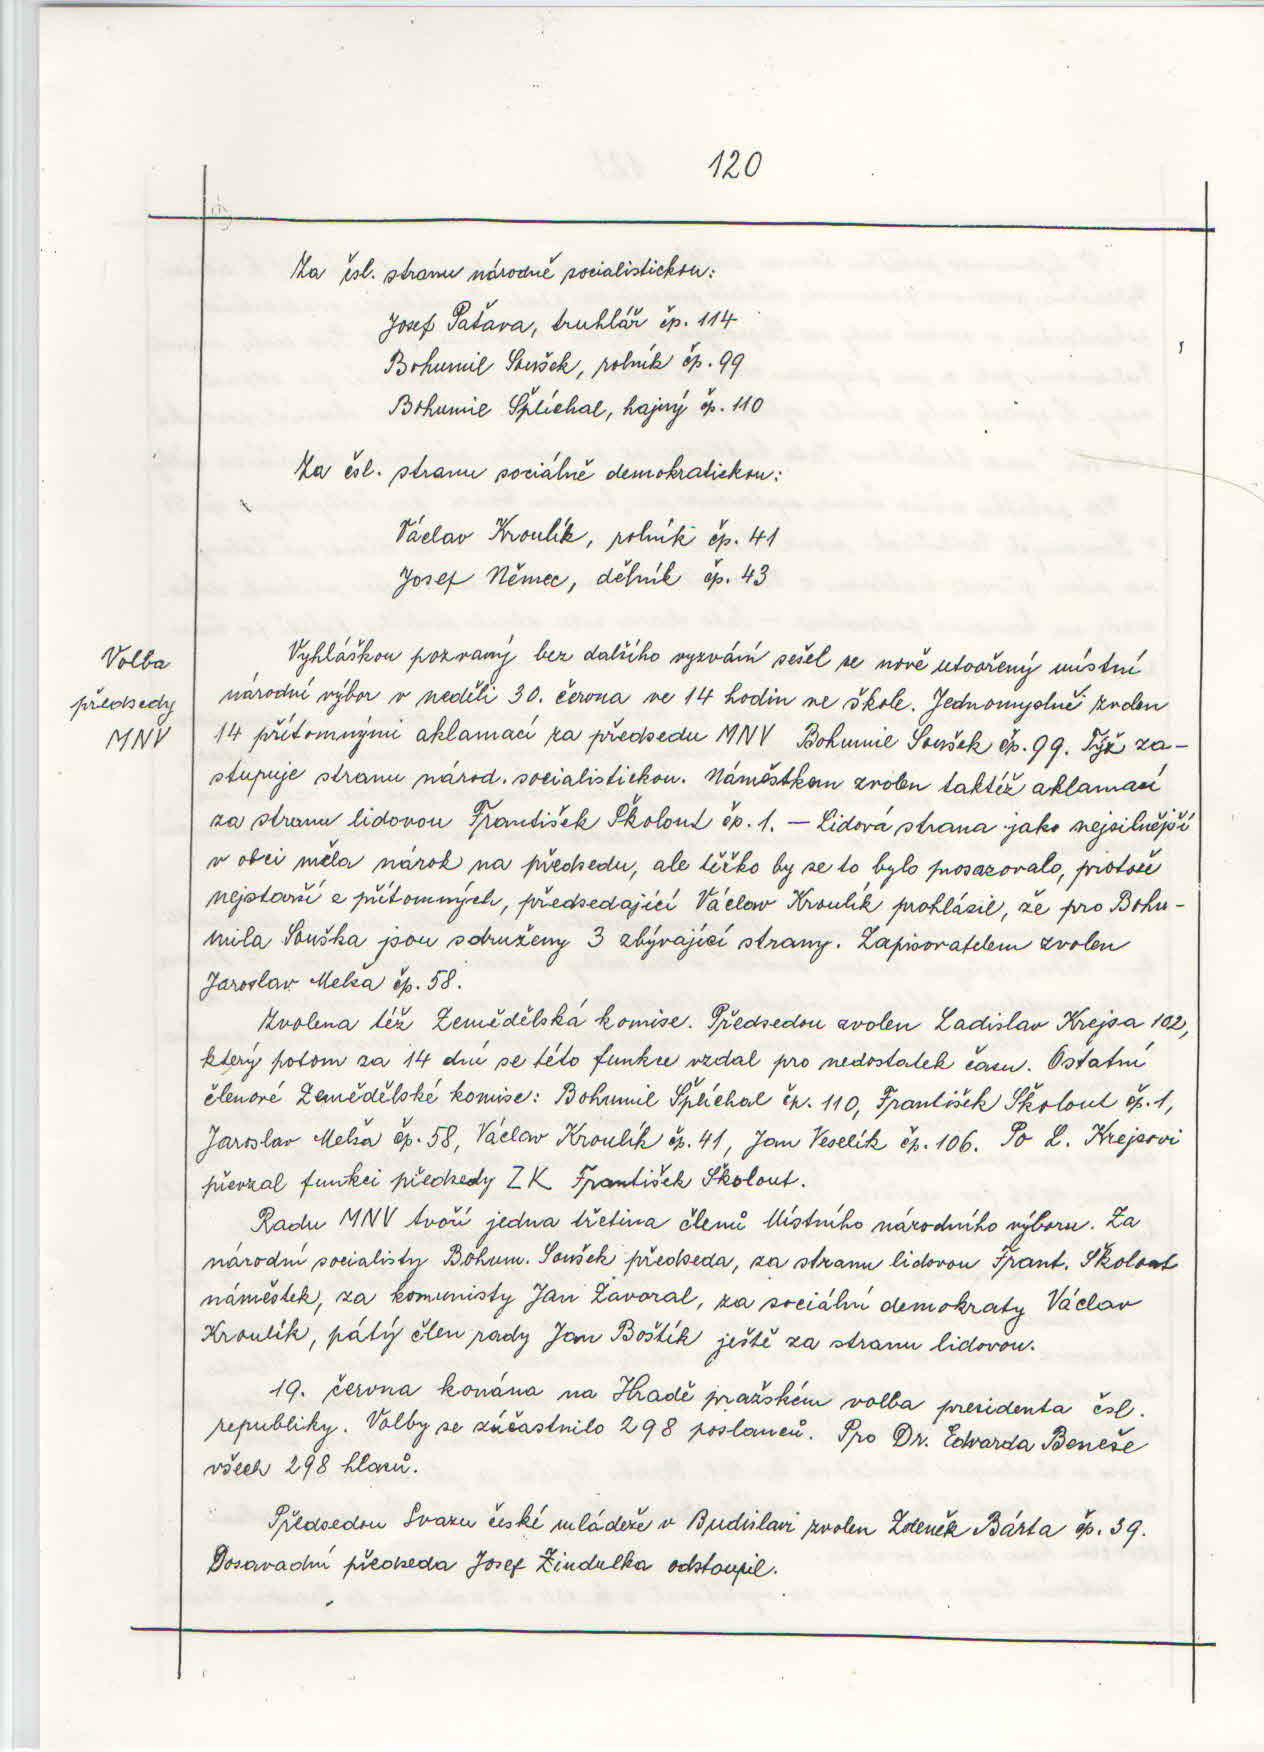 120
Za čsl. stranu národně socialistickou:
Josef Paťava, truhlář čp. 114
Bohumil Soušek, rolník čp. 99
Bohumil Šplíchal, hajný čp. 110
Za čsl. stranu sociálně demokratickou:
Václav Kroulík, rolník čp. 41
Josef Němec, dělník čp. 43
Volba
předsedy
MNV
Vyhláškou pozvaný bez dalšího vyzvání sešel se nově utvořený místní
národní výbor v neděli 30. června ve 14 hodin ve škole. Jednomyslně zvolen
14 přítomnými aklamací za předsedu MNV Bohumil Soušek čp. 99. Týž za-
stupuje stranu národ. socialistickou. Náměstkem zvolen taktéž aklamací
za stranu lidovou František Školout čp. 1. – Lidová strana jako nejsilnější
v obci měla nárok na předsedu, ale těžko by se to bylo prosazovalo, protože
nejstarší z přítomných, předsedající Václav Kroulík prohlásil, že pro Bohu-
mila Souška jsou sdruženy 3 zbývající strany. Zapisovatelem zvolen
Jaroslav Melša čp. 58.
Zvolena též Zemědělská komise. Předsedou zvolen Ladislav Krejsa 102,
který potom za 14 dní se této funkce vzdal pro nedostatek času. Ostatní
členové Zemědělské komise: Bohumil Šplíchal čp. 110, František Školout čp. 1,
Jaroslav Melša čp. 58, Václav Kroulík čp. 41, Jan Veselík čp. 106. Po L. Krejsovi
převzal funkci předsedy ZK František Školout.
Radu MNV tvoří jedna třetina členů Místního národního výboru. Za
národní socialisty Bohum. Soušek předseda, za stranu lidovou Frant. Školout
náměstek, za komunisty Jan Zavoral, za sociální demokraty Václav
Kroulík, pátý člen rady Jan Boštík ještě za stranu lidovou.
19. června konána na Hradě pražském volba presidenta čsl.
republiky. Volby se zúčastnilo 298 poslanců. Pro Dr. Edvarda Beneše
všech 298 hlasů.
Předsedou Svazu české mládeže v Budislavi zvolen Zdeněk Bárta čp. 39.
Dosavadní předseda Josef Zindulka odstoupil.